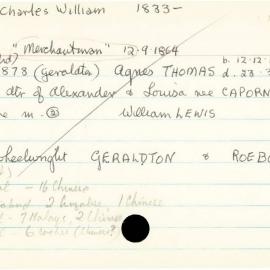 Charles William 1833-
"Merchantman" 12.9.1864
1878 (Geraldton) Agnes THOMAS b. 12.12.
dtr of Alexander & Louisa nee CAPORN d. 23.3
m. ② William LEWIS
wheelwright GERALDTON & ROEBO
- 16 Chinese
2 1 Chinese
- 7 Malays, 2 Chinese
- 6 (Chinese?)